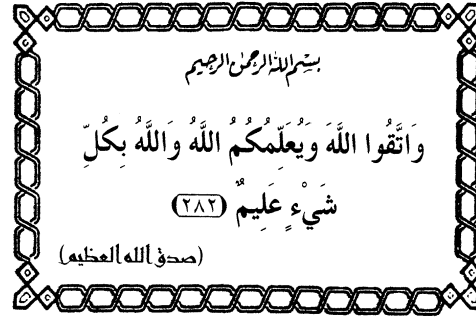 بسم الله الرحمن الرحيم
وَاتَّقُوا اللَّهَ وَيُعَلِّمُكُمُ اللَّهُ وَاللَّهُ بِكُلِّ
شَيْءٍ عَلِيمٌ (٢٨٢)
(صدق الله العظيم)